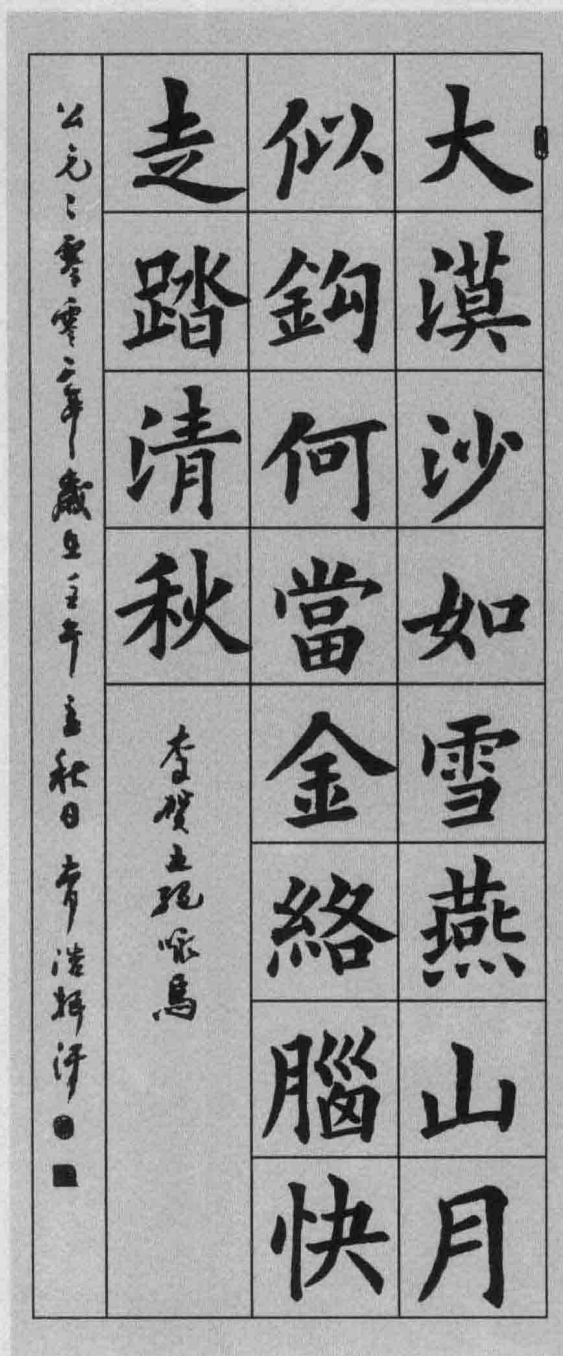 大漠沙如雪燕山月
似鈎何當金絡腦快
走踏清秋
李賀五絕咏馬
公元二零零二年歲在壬午孟秋日 浩揮汗